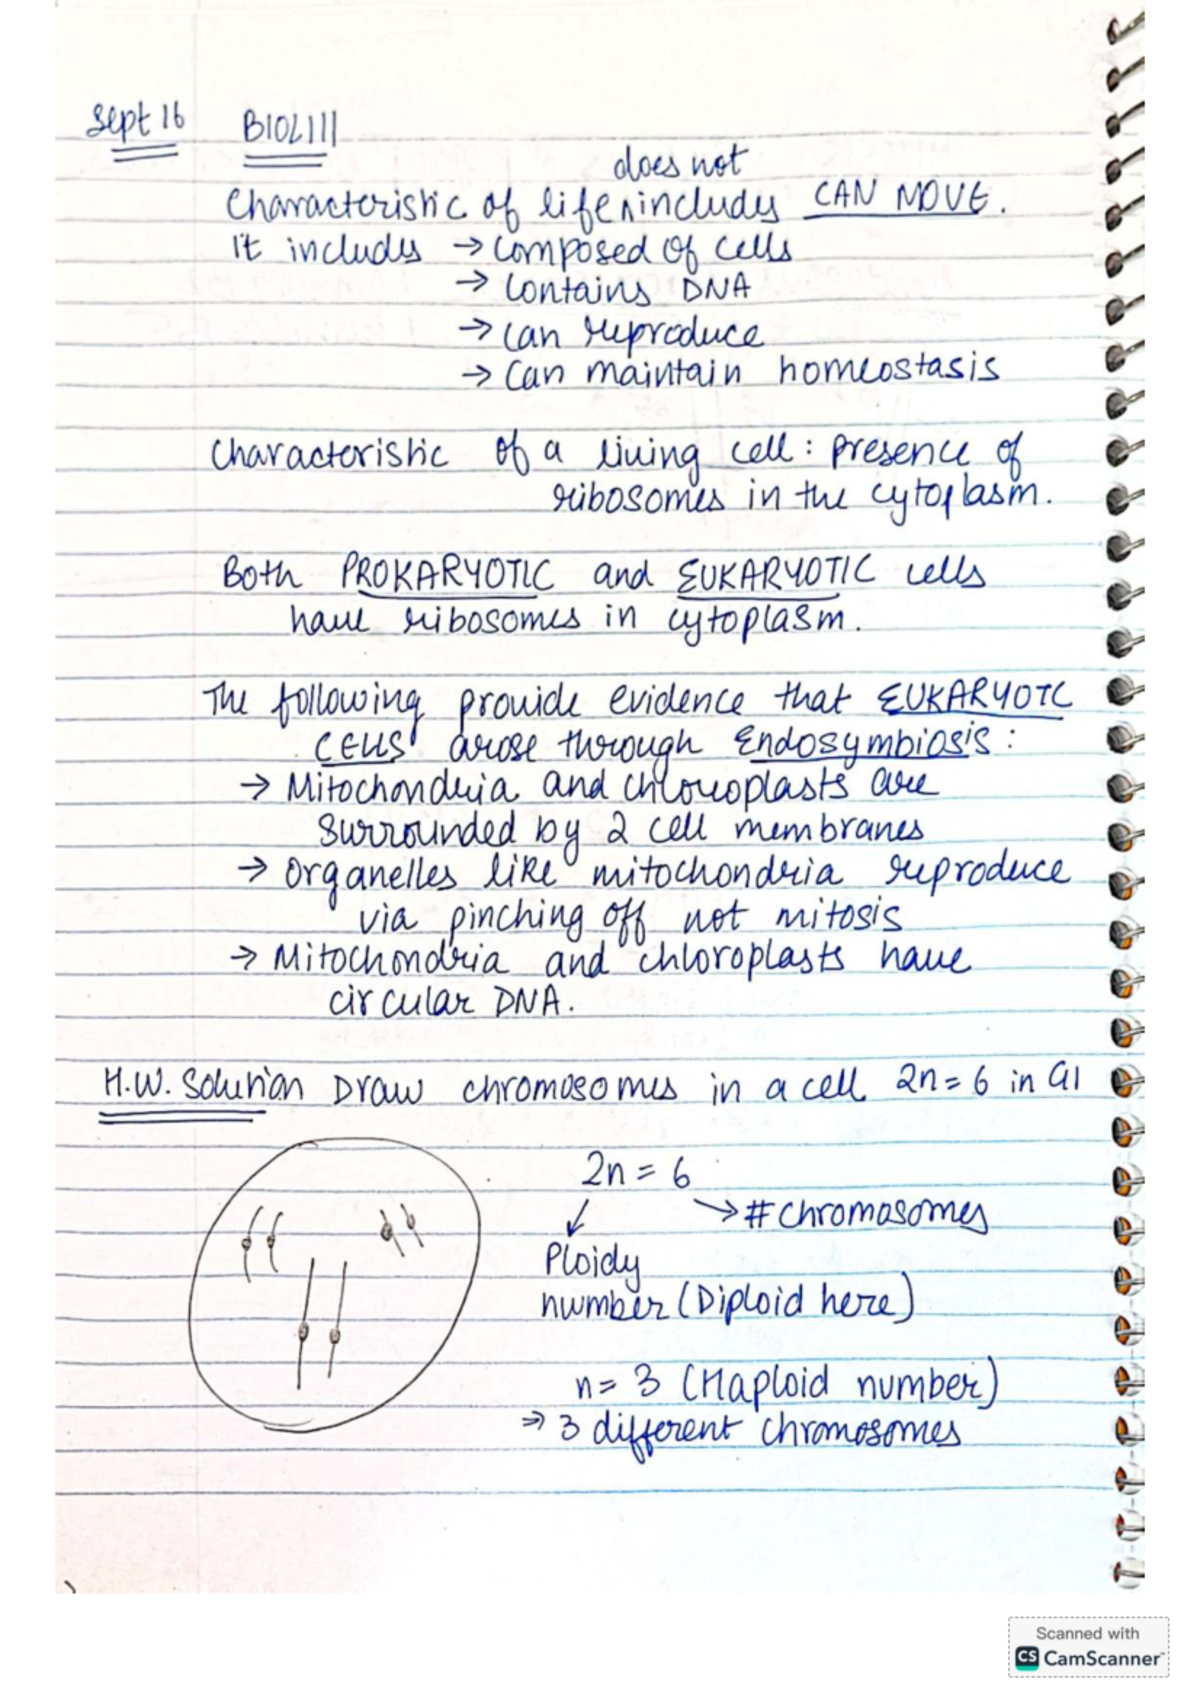 Sept 16 BIOL111
does not
Characteristic of life ^ includes CAN MOVE.
It includes → Composed of cells
→ Contains DNA
→ Can reproduce
→ Can maintain homeostasis
Characteristic of a living cell : presence of
ribosomes in the cytoplasm.
Both PROKARYOTIC and EUKARYOTIC cells
have ribosomes in cytoplasm.
The following provide evidence that EUKARYOTC
CELLS arose through Endosymbiosis :
→ Mitochondria and chloroplasts are
surrounded by 2 cell membranes
→ Organelles like mitochondria reproduce
via pinching off not mitosis
→ Mitochondria and chloroplasts have
circular DNA.
H.W. Solution Draw chromosomes in a cell 2n = 6 in G1
2n = 6
→ # chromosomes
Ploidy
number (Diploid here)
n = 3 (Haploid number)
⇒ 3 different chromosomes
Scanned with
CS CamScanner